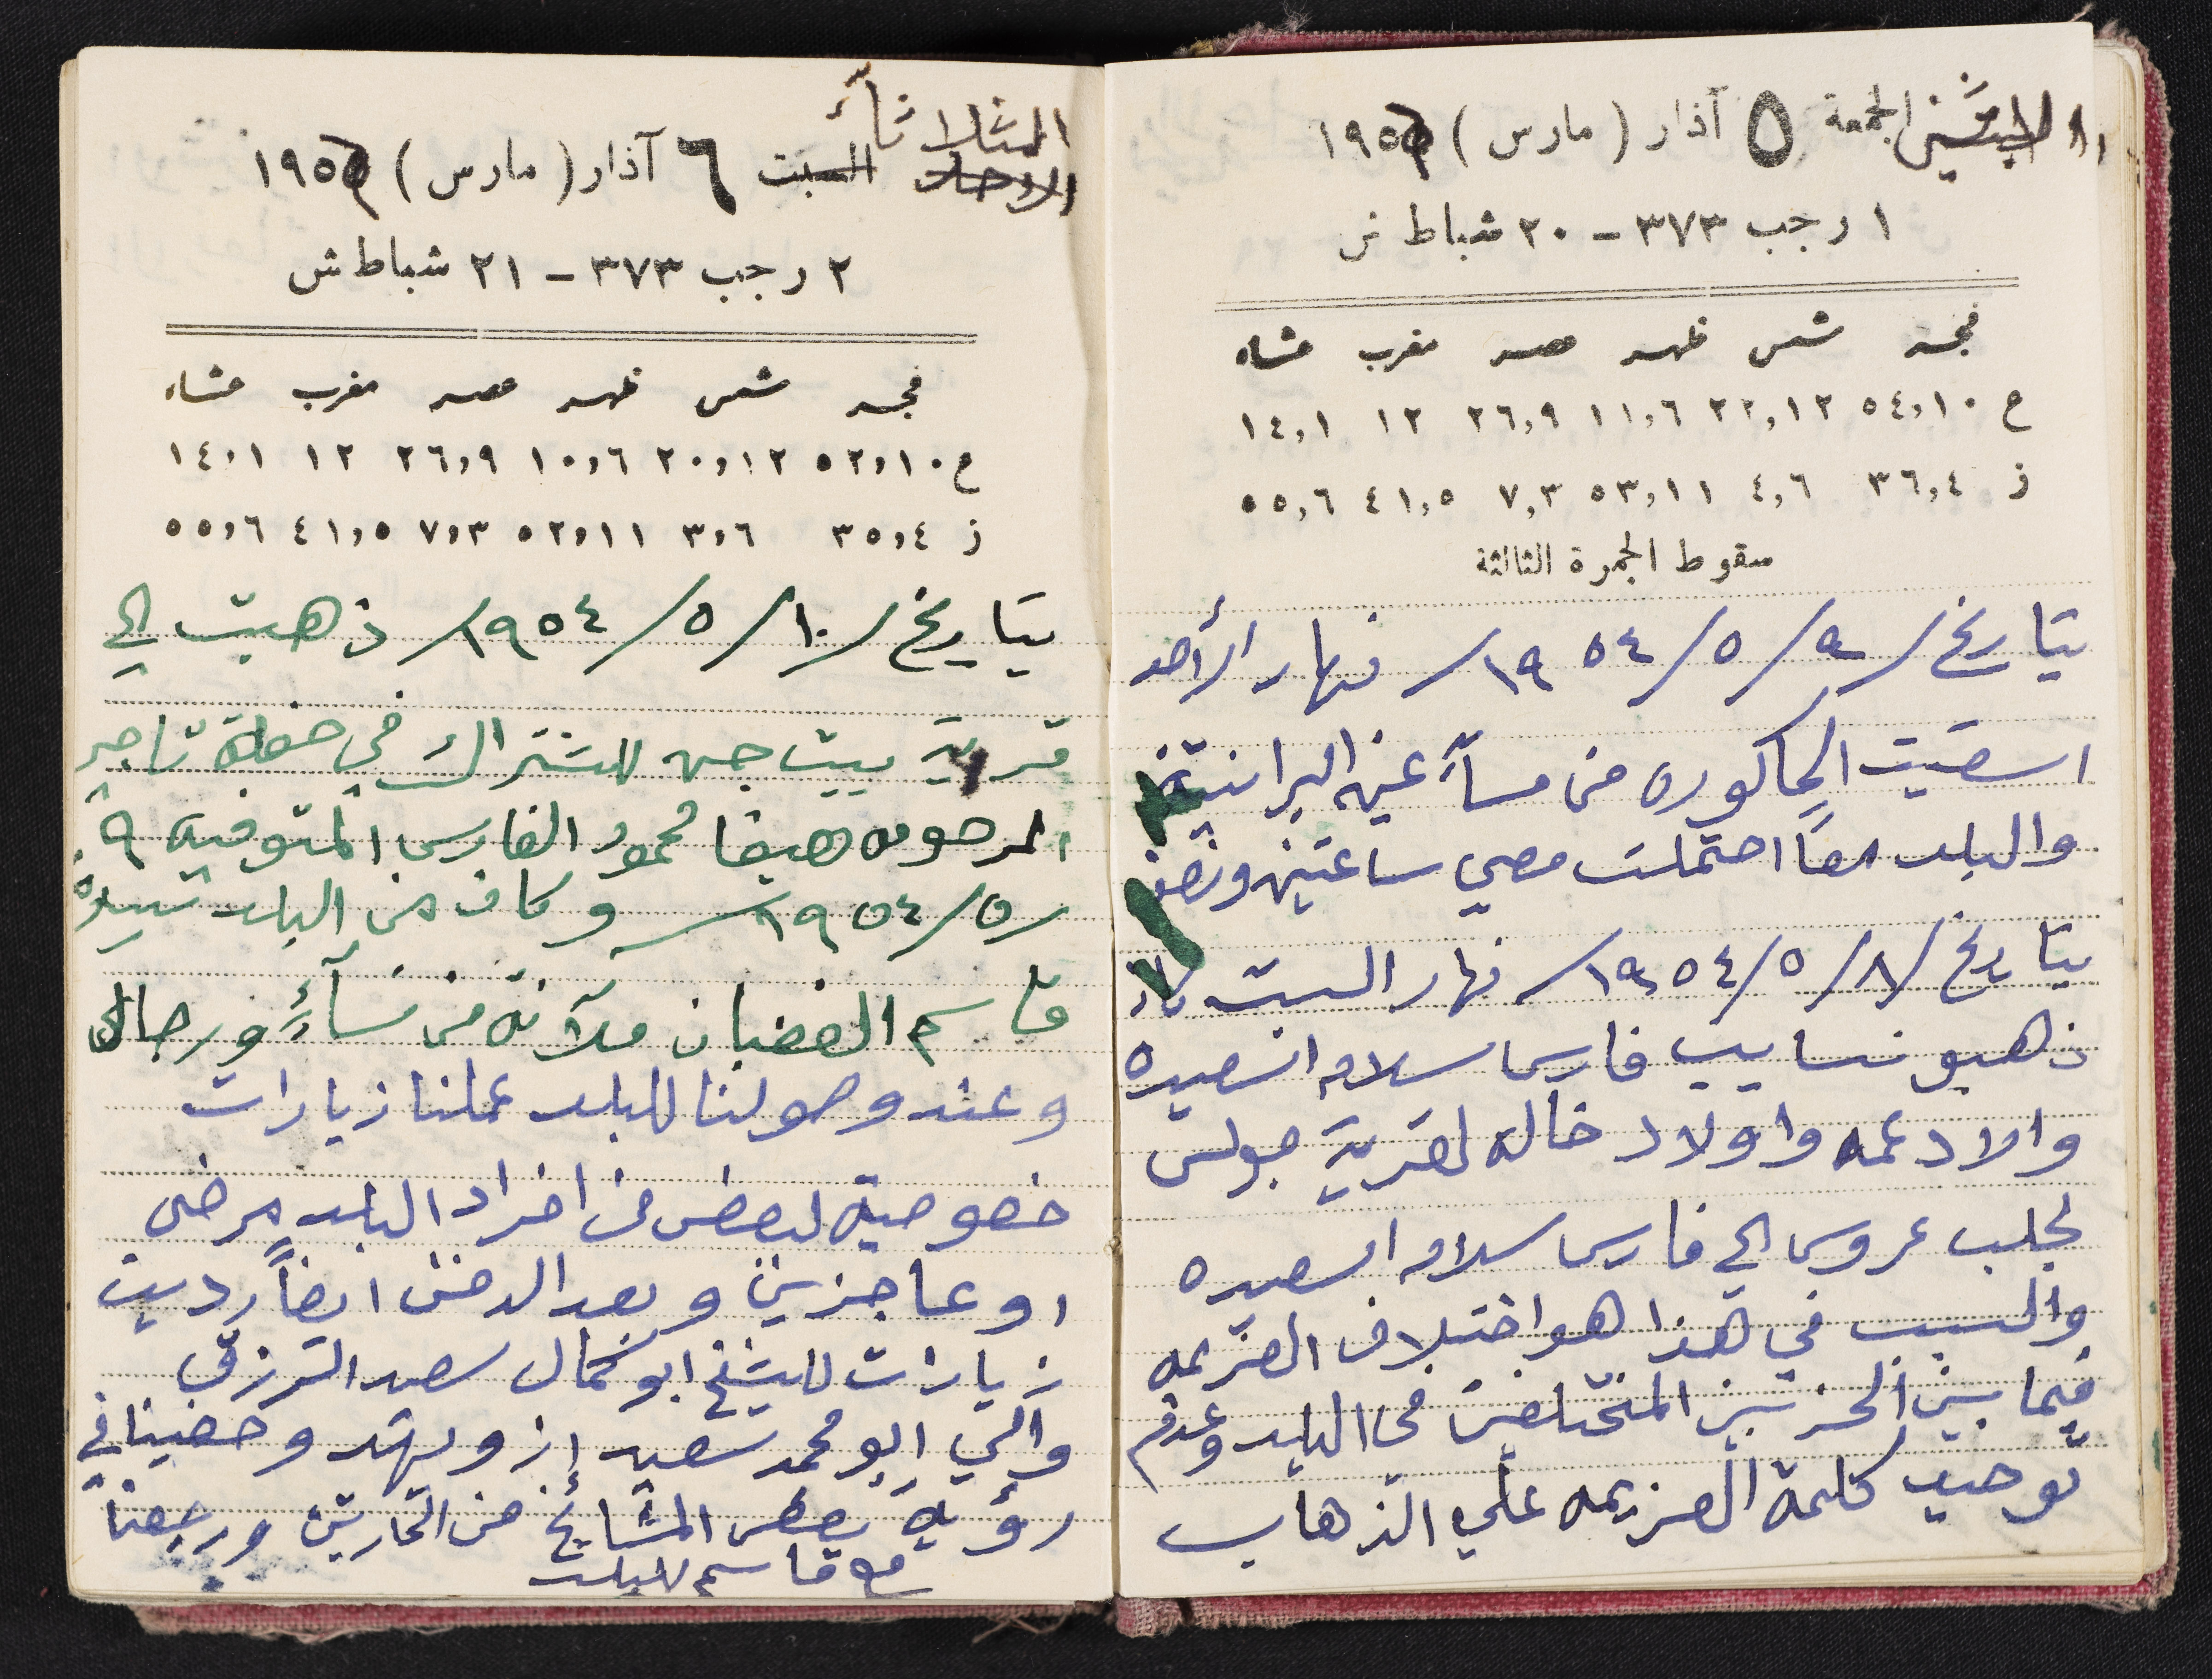 الاثنين الجمعة ٥ آذار (مارس) ١٩٥٤
١ رجب ٣٧٣ - ٢٠ شباط ش
فجر شمس ظهر عصر مغرب عشاء
ع ٥٤,١٠ ٢٢,١٢ ١١,٦ ٢٦,٩ ١٢ ١٤,١
ز ٣٦,٤ ٤,٦ ٥٣,١١ ٧,٣ ٤١,٥ ٥٥,٦
سقوط الجمرة الثالثة
بتاريخ /٩/ ٥/ ١٩٥٤/ نهار الأحد
اسقيت الحاكوره من مسآءً عين البرانيه
والبلد معاً احتملت معي ساعتين ونصف
بتاريخ /٨/ ٥/ ١٩٥٤/ نهار السبت
ذهبو نسايب فارس سلامه اسعيده
والاد عمه واولاد خاله لقرية جولس
لجلب عروس الى فارس سلامه اسعيده
والسبب في هذا هو اختلاف العزيمه
فيما بين الحزبين المختلفين في البلد وعدم
توحيد كلمة العزيمه على الذهاب
الثلاثآء
الاحد السبت ٦ آذار (مارس) ١٩٥٤
٢ رجب ٣٧٣ - ٢١ شباط ش
فجر شمس ظهر عصر مغرب عشاء
ع ٥٢,١٠ ٢٠,١٢ ١٠,٦ ٢٦,٩ ١٢ ١٤,١
ز ٣٥,٤ ٣,٦ ٥٢,١١ ٧,٣ ٤١,٥ ٥٥,٦
بتاريخ /١٠/ ٥/ ١٩٥٤/ ذهبت الى
قرية بيت جن للشتراك في حفلة تاجير
المرحومه هيفا محمود الفارس المتوفيه ٩
/٥/ ١٩٥٤/ وكان من البلد سيارة
قاسم الغضبان ملآنه من نسآءً ورجال
وعند وصولنا للبلد عملنا زيارات
خصوصية لبعض من افراد البلد مرضى
او عاجزين وبعد الدفن ايضاً رديت
زيارات للشيخ ابو كمال سعد الترزي
والى ابو محمد سعيد وحضينا في
رؤية بعض المشايخ من الحارتين ورجعنا
مع قاسم للبلد